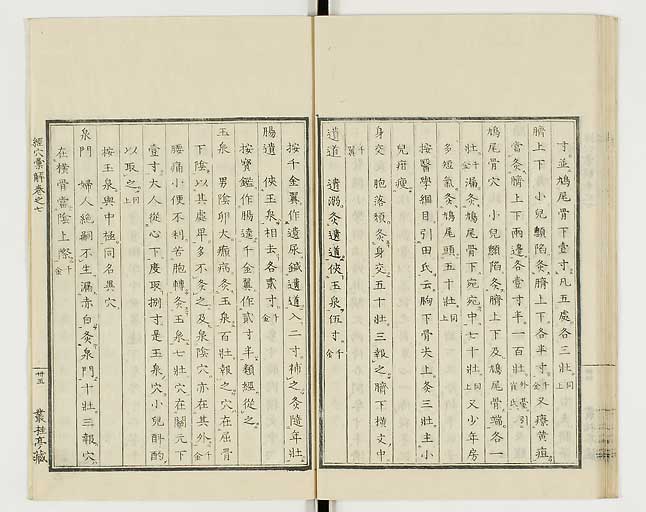 寸並鳩尾骨下壹寸凡五處各三壯同上
臍上下 小兒顖陷灸臍上下各半寸千金又療黃疸
當灸臍上下兩邊各壹寸半一百壯外臺引
鳩尾骨穴 小兒顖陷灸臍上下及鳩尾骨端各一
壯千金漏灸鳩尾骨下宛宛中七十壯同上又少年房
多短氣灸鳩尾頭五十壯同上
按醫學綱目引田氏云胸下骨尖上灸三壯主小
兒疳瘦
身交 胞落頹灸身交五十壯三報之臍下橫文中
千翼
遺道 遺溺灸遺道俠玉泉伍寸千金
按千金翼作遺尿鍼遺道入二寸補之灸隨年壯
腸遺 俠玉泉相去各貳寸千金
按寶鑑作腸遶千金翼作貳寸半類經從之
玉泉 男陰卵大癩病灸玉泉百壯報之穴在屈骨
下陰以其處卑多不灸之及泉陰穴亦在其外千金
腰痛小便不利苦胞轉灸玉泉七壯穴在關元下
壹寸大人從心下度取捌寸是玉泉穴小兒斟酌
以取之同上
按玉泉與中極同名異穴
泉門 婦人絕嗣不生漏赤白灸泉門十壯三報穴
在橫骨當陰上際千金
經穴彙解卷之七
卅五
叢桂亭藏